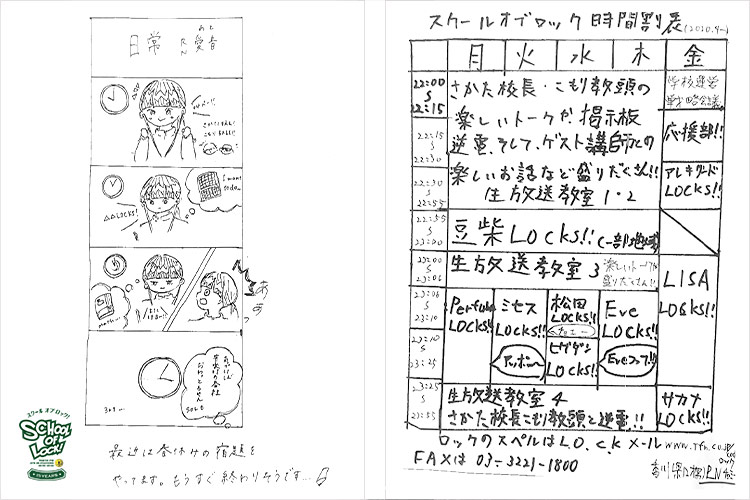 日常 RN 愛音
△△LOCKS!
I want
to do…
math…
最近は春休みの宿題を
やってます。もうすぐ終わりそうです…
スクール オブ ロック!
SCHOOL
OF
LOCK!
スクールオブロック 時間割表 (2020.4~)
月 火 水 木 金
22:00
22:15
さかた校長・こもり教頭の
楽しいトークや、掲示板
逆電、そして、ゲスト講師との
楽しいお話など盛りだくさん!!
生放送教室 1・2
学校運営
戦略会議
22:15
22:30
応援部!!
22:30
22:55
アレキサンドLOCKS!!
22:55
23:00
豆柴LOCKS!! (一部地域)
23:00
23:06
生放送教室 3
楽しいトークが
盛りだくさん!!
LISA
LOCKS!!
23:06
23:10
Perfume
LOCKS!!
ミセス
LOCKS!!
松田
LOCKS!!
Eve
LOCKS!!
23:10
23:25
ヒゲダン
LOCKS!!
23:25
23:55
生放送教室 4
さかた校長こもり教頭と逆電!!
サカナ
LOCKS!!
ロックのスペルは L.O.C.K メール www.tfm.co.jp/lock
FAXは 03-3221-1800